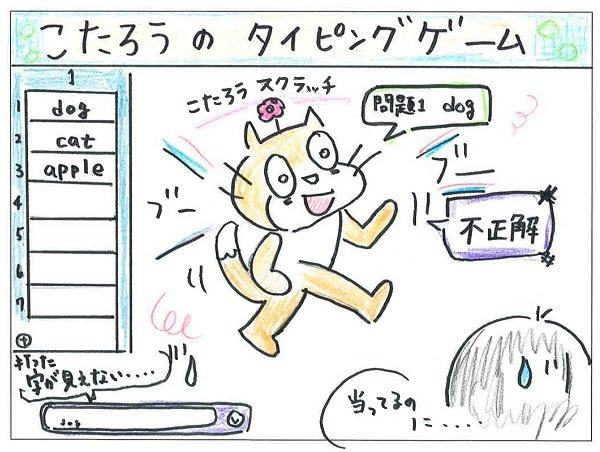 こたろうの タイピングゲーム
1
1 dog
2 cat
3 apple
4
5
6
7
+
こたろう スクラッチ
問題1 dog
ブー
ブー
不正解
打った
字が見えない....
dog
当ってるの
に.....